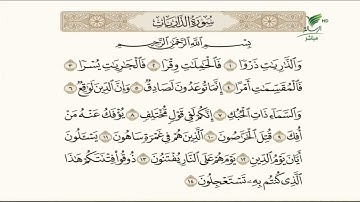 سُورَةُ الذَّارِيَاتِ
بِسْمِ اللَّهِ الرَّحْمَٰنِ الرَّحِيمِ
وَالذَّارِيَاتِ ذَرْوًا ١ فَالْحَامِلَاتِ وِقْرًا ٢ فَالْجَارِيَاتِ يُسْرًا ٣
فَالْمُقَسِّمَاتِ أَمْرًا ٤ إِنَّمَا تُوعَدُونَ لَصَادِقٌ ٥ وَإِنَّ الدِّينَ لَوَاقِعٌ ٦
وَالسَّمَاءِ ذَاتِ الْحُبُكِ ٧ إِنَّكُمْ لَفِي قَوْلٍ مُخْتَلِفٍ ٨ يُؤْفَكُ عَنْهُ مَنْ
أُفِكَ ٩ قُتِلَ الْخَرَّاصُونَ ١٠ الَّذِينَ هُمْ فِي غَمْرَةٍ سَاهُونَ ١١ يَسْأَلُونَ
أَيَّانَ يَوْمُ الدِّينِ ١٢ يَوْمَ هُمْ عَلَى النَّارِ يُفْتَنُونَ ١٣ ذُوقُوا فِتْنَتَكُمْ هَٰذَا
الَّذِي كُنْتُمْ بِهِ تَسْتَعْجِلُونَ ١٤
HD
مباشر